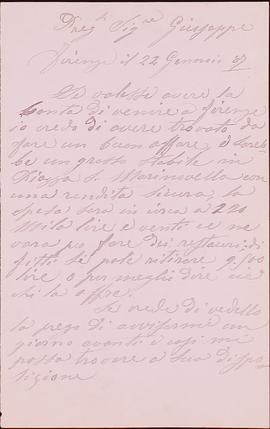 Preg. Sig.re Giuseppe
Firenze il 22 Gennaio 87
Se volesse avere la
bonta di venire a firenze
io credo di avere trovato da
fare un buon affare, è Sareb
be un grosso stabile in
Piazza S. Marinovella con
una rendita sicura, la
spesa sara in circa a 220
Mila lire e vento ce ne
vora po fare dei restauri: di
fitto se pole ritirare 9,500
lire o per meglio dire cie
chi la offre.
Se crede di vedello
la prego di avvisarmi un
giorno avanti e cosi mi
possa trovare a Sua dispo
sizione